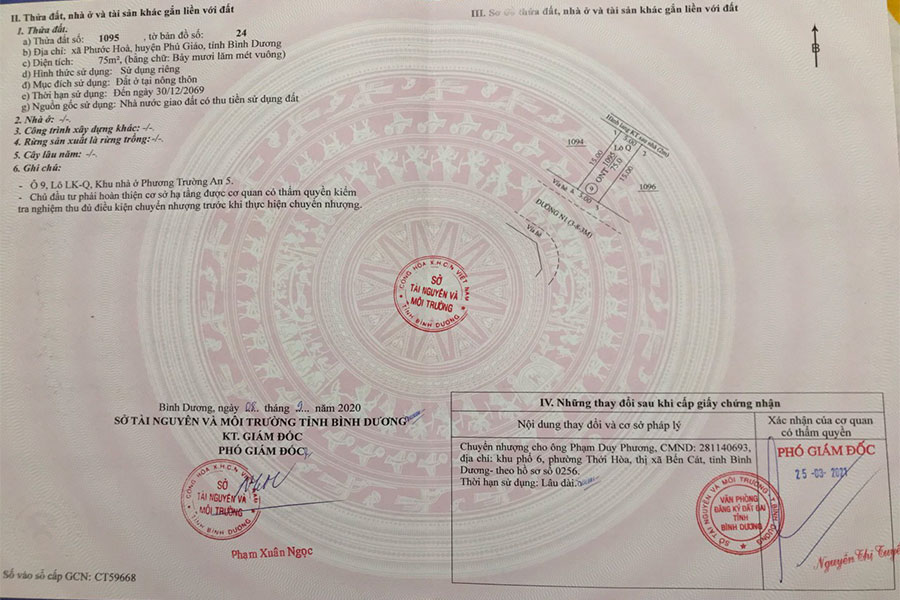 II. Thửa đất, nhà ở và tài sản khác gắn liền với đất
1. Thửa đất.
a) Thửa đất số: 1095 , tờ bản đồ số: 24
b) Địa chỉ: xã Phước Hoà, huyện Phú Giáo, tỉnh Bình Dương
c) Diện tích: 75m², (bằng chữ: Bảy mươi lăm mét vuông)
d) Hình thức sử dụng: Sử dụng riêng
đ) Mục đích sử dụng: Đất ở tại nông thôn
e) Thời hạn sử dụng: Đến ngày 30/12/2069
g) Nguồn gốc sử dụng: Nhà nước giao đất có thu tiền sử dụng đất
2. Nhà ở: -/-.
3. Công trình xây dựng khác: -/-.
4. Rừng sản xuất là rừng trồng: -/-.
5. Cây lâu năm: -/-.
6. Ghi chú:
- Ô 9, Lô LK-Q, Khu nhà ở Phương Trường An 5.
- Chủ đầu tư phải hoàn thiện cơ sở hạ tầng được cơ quan có thẩm quyền kiểm
tra nghiệm thu đủ điều kiện chuyển nhượng trước khi thực hiện chuyển nhượng.
III. Sơ đồ thửa đất, nhà ở và tài sản khác gắn liền với đất
B
Hành lang KT sau nhà (2m)
1094
5.00
Lô Q
15.00
ONT 1095
75.0
15.00
1096
9
Vỉa hè
5.00
ĐƯỜNG N1 (3-8-3M)
Vỉa hè
CỘNG HÒA X.H.C.N VIỆT NAM
SỞ
TÀI NGUYÊN VÀ
MÔI TRƯỜNG
TỈNH BÌNH DƯƠNG
Bình Dương, ngày 08 tháng 9 năm 2020
SỞ TÀI NGUYÊN VÀ MÔI TRƯỜNG TỈNH BÌNH DƯƠNG
KT. GIÁM ĐỐC
PHÓ GIÁM ĐỐC
CỘNG HÒA X.H.C.N VIỆT NAM
SỞ
TÀI NGUYÊN VÀ
MÔI TRƯỜNG
TỈNH BÌNH DƯƠNG
Phạm Xuân Ngọc
Số vào sổ cấp GCN: CT59668
IV. Những thay đổi sau khi cấp giấy chứng nhận
Nội dung thay đổi và cơ sở pháp lý
Xác nhận của cơ quan
có thẩm quyền
Chuyển nhượng cho ông Phạm Duy Phương, CMND: 281140693,
địa chỉ: khu phố 6, phường Thới Hòa, thị xã Bến Cát, tỉnh Bình
Dương- theo hồ sơ số 0256.
Thời hạn sử dụng: Lâu dài.
PHÓ GIÁM ĐỐC
25-03-2021
SỞ TÀI NGUYÊN VÀ MÔI TRƯỜNG T. BÌNH DƯƠNG
VĂN PHÒNG
ĐĂNG KÝ ĐẤT ĐAI
TỈNH
BÌNH DƯƠNG
Nguyễn Thị Tuyết